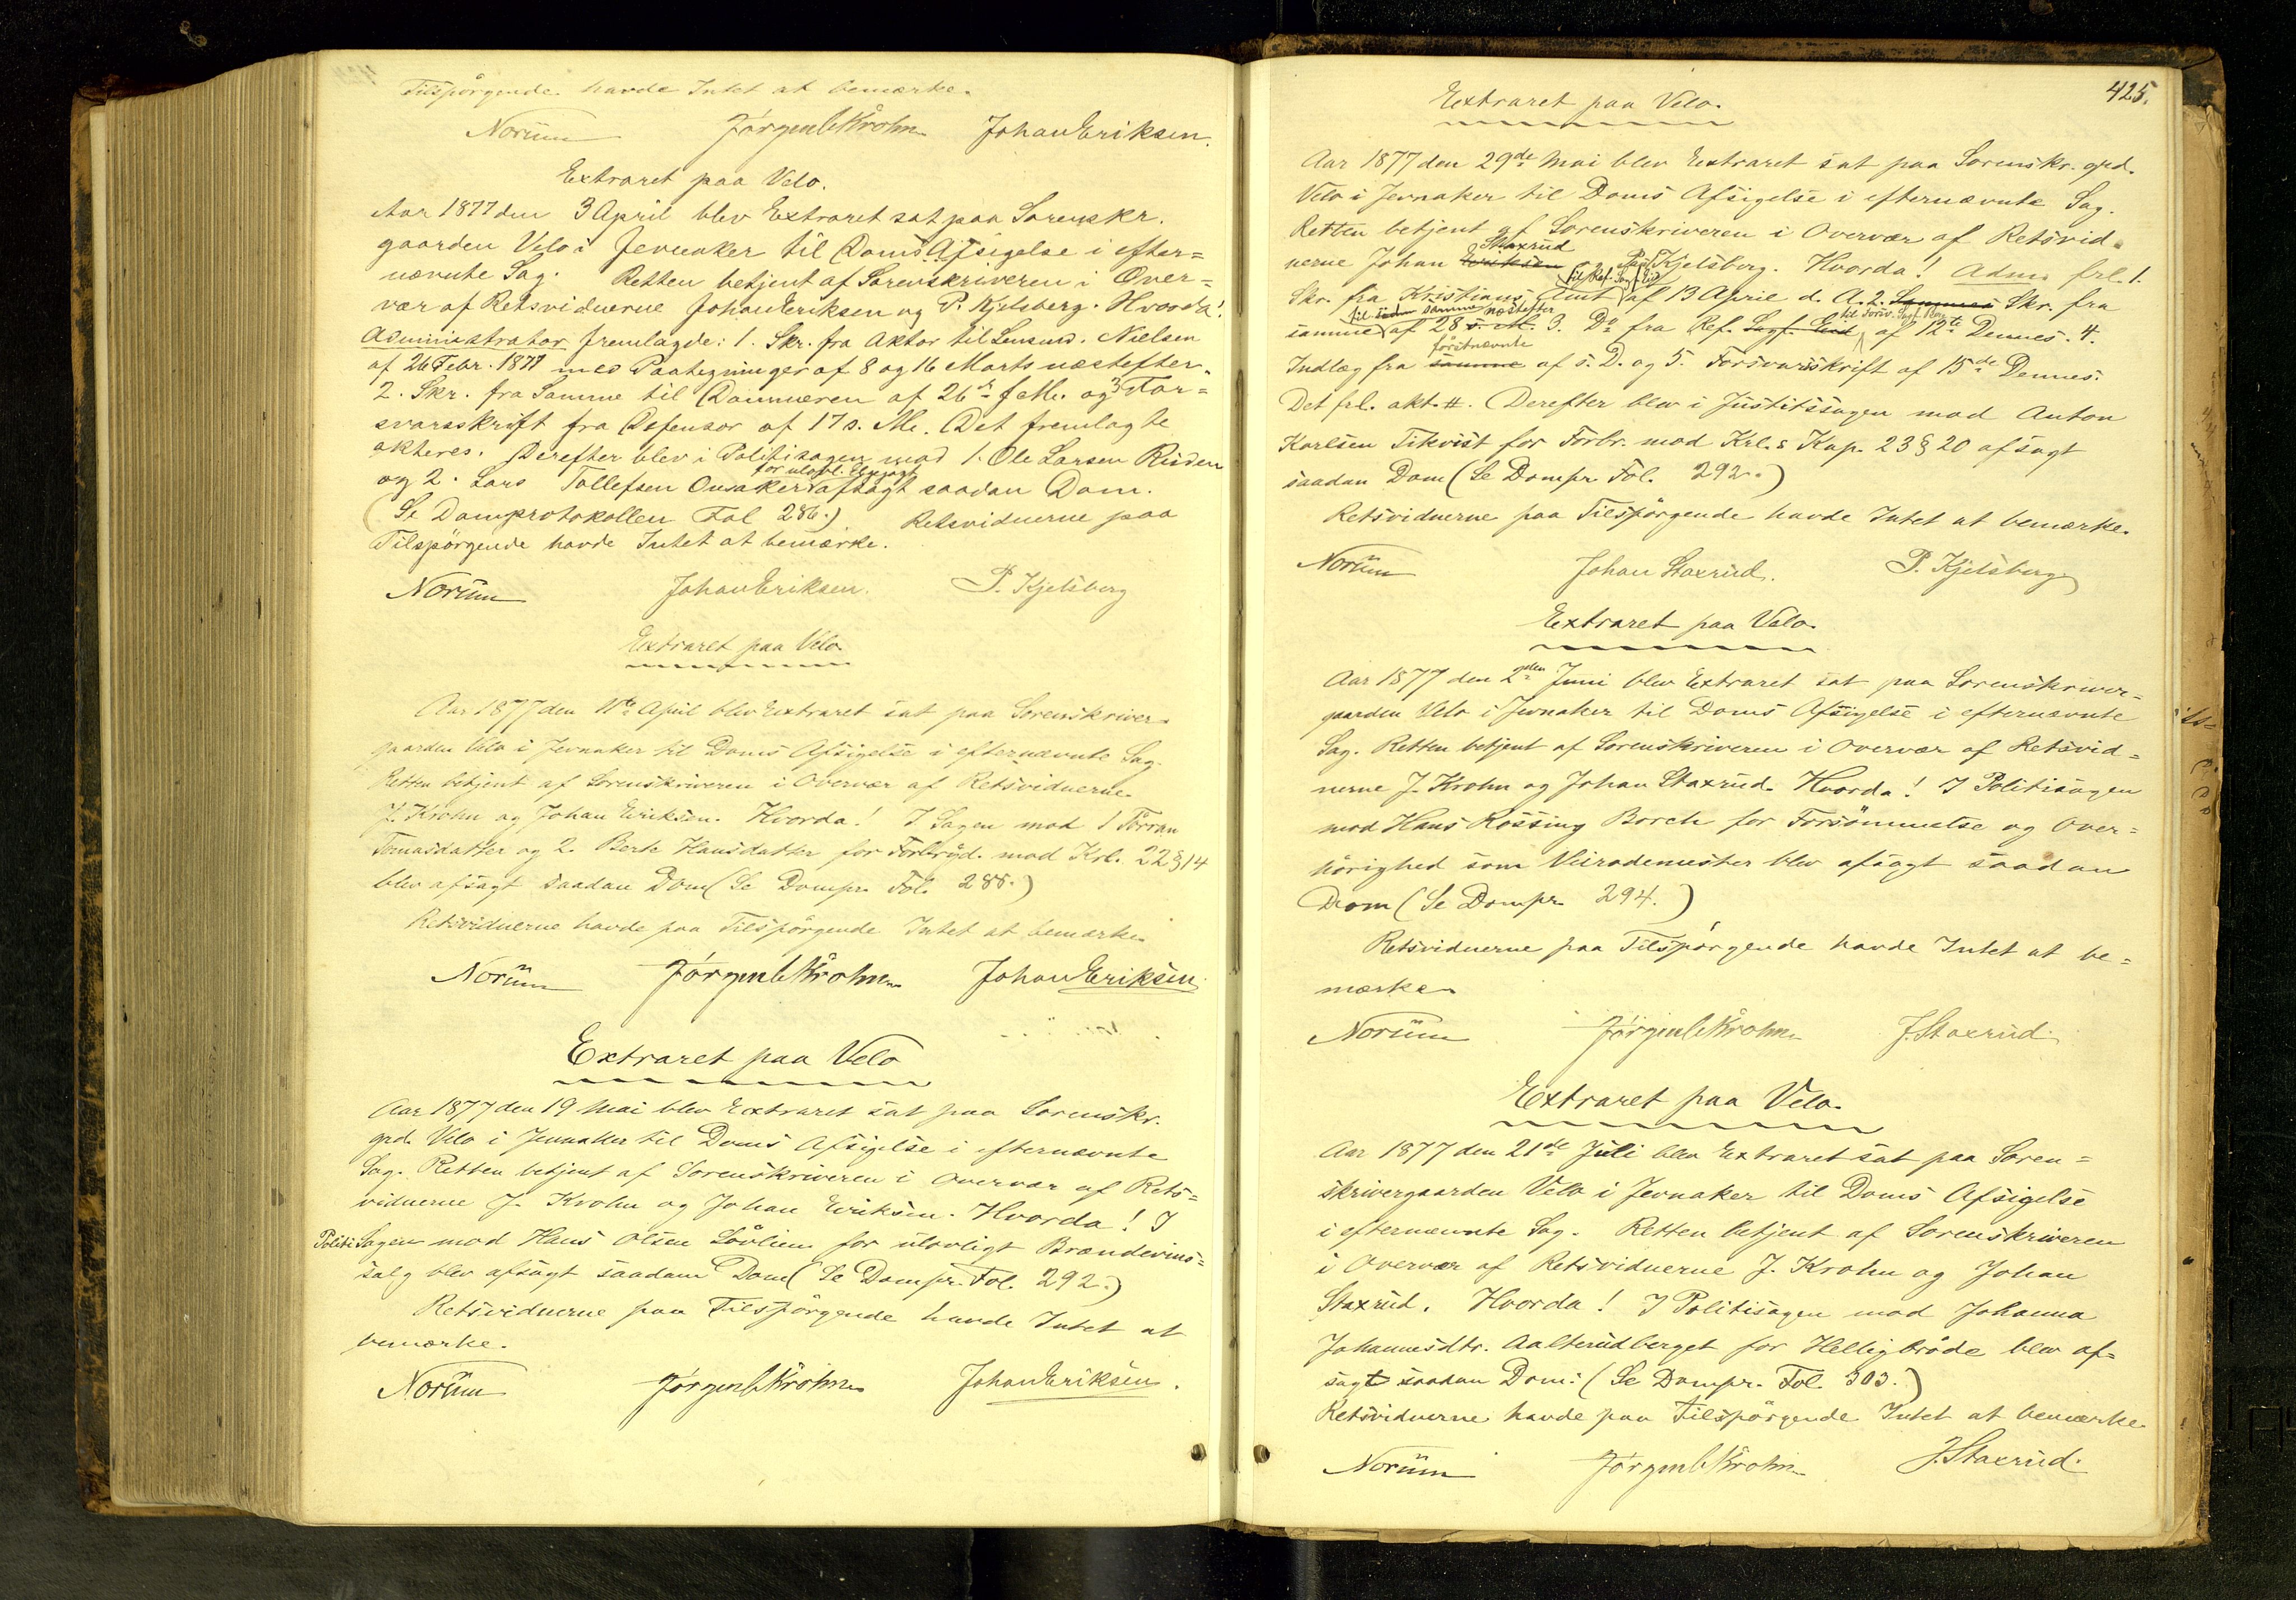 Tilspörgende havde Intet at bemærke.
Norum Jörgen C Krohn Johan Eriksen.
Extraret paa Velo.
Aar 1877 den 3 April blev Extraret sat paa Sorenskr.
gaarden Velo i Jevnaker til Doms Afsigelse i efter=
nævnte Sag. Retten betjent af Sorenskriveren i Over=
vær af Retsvidnerne Johan Eriksen og P. Kjelsberg. Hvorda!
Administrator fremlagde: 1. Skr. fra Aktor til Lensmd. Nielsen
af 26 Febr. 1877 med Paategninger af 8 og 16 Marts næstefter.
2. Skr. fra Samme til Dommeren af 26de f. M. og 3 For=
svarsskrift fra Defensor af 17 s. M. Det fremlagte
akteres. Derefter blev i Politisagen mod 1. Ole Larsen Risden
for ulovl.
og 2. Lars Tollefsen Onsaker afsagt saadan Dom.
(Se Domprotokollen Fol 286.) Retsvidnerne paa
Tilspörgende havde Intet at bemærke.
Norum Johan Eriksen. P. Kjelsberg
Extraret paa Velo.
Aar 1877 den 11te April blev Extraret sat paa Sorenskriver-
gaarden Velo i Jevnaker til Doms Afsigelse i efternævnte Sag.
Retten betjent af Sorenskriveren i Overvær af Retsvidnerne
J. Krohn og Johan Eriksen. Hvorda! I Sagen mod 1 Törran
Tomasdatter og 2. Berte Hansdatter for Forbryd. mod Krl. 22 § 14
blev afsagt saadan Dom (Se Dompr. Fol. 288.)
Retsvidnerne havde paa Tilspörgende Intet at bemærke.
Norum Jörgen C Krohn Johan Eriksen
Extraret paa Velo
Aar 1877 den 19 Mai blev Extraret sat paa Sorenskr.
grd. Velo i Jevnaker til Doms Afsigelse i efternævnte
Sag. Retten betjent af Sorenskriveren i Overvær af Rets=
vidnerne J. Krohn og Johan Eriksen. Hvorda! I
PolitiSagen mod Hans Olsen Lövlien for ulovligt Brændevins=
salg blev afsagt saadan Dom (Se Dompr. Fol. 292.)
Retsvidnerne paa Tilspörgende havde Intet at
bemærke.
Norum Jörgen C Krohn Johan Eriksen.
425.
Extraret paa Velo.
Aar 1877 den 29de Mai blev Extraret sat paa Sorenskr. grd.
Velo i Jevnaker til Doms Afsigelse i efternævnte Sag.
Retten betjent af Sorenskriveren i Overvær af Retsvid=
Staxrud
nerne Johan Eriksen og Paul Kjelsberg. Hvorda! Adm. frl. 1.
Skr. fra Kristians Amt af 13 April d. A. 2. Sammes Skr. fra
til samme næstefter
samme af 28 s. M. 3. Do fra Ref. Sagf. Lid af 12te Dennes. 4.
förstnævnte
Indlæg fra samme af s. D. og 5. Forsvarsskrift af 15de Dennes.
Det frl. akt. #. Derefter blev i Justitssagen mod Anton
Karlsen Tikvist for Forbr. mod Krl.s Kap. 23 § 20 afsagt
saadan Dom (Se Dompr Fol. 292.)
Retsvidnerne paa Tilspörgende havde Intet at bemærke.
Norum Johan Staxrud. P. Kjelsberg
Extraret paa Velo.
Aar 1877 den 2den Juni blev Extraret sat paa Sorenskriver=
gaarden Velo i Jevnaker til Doms Afsigelse i efternævnte
Sag. Retten betjent af Sorenskriveren i Overvær af Retsvid=
nerne J. Krohn og Johan Staxrud. Hvorda! I Politisagen
mod Hans Rossing Borch for Forsömmelse og Over=
hörighed som Veirodemester blev afsagt saadan
Dom (Se Dompr. 294.)
Retsvidnerne paa Tilspörgende havde Intet at be=
mærke.
Norum Jörgen C Krohn J. Staxrud.
Extraret paa Velo.
Aar 1877 den 21de Juli blev Extraret sat paa Soren=
skrivergaarden Velo i Jevnaker til Doms Afsigelse
i efternævnte Sag. Retten betjent af Sorenskriveren
i Overvær af Retsvidnerne J. Krohn og Johan
Staxrud. Hvorda! I Politisagen mod Johanna
Johannesdtr. Aalterudberget for Helligbröde blev af=
sagt saadan Dom: (Se Dompr. Fol. 303.)
Retsvidnerne havde paa Tilspörgende Intet at bemærke.
Norum Jörgen C Krohn J. Staxrud.